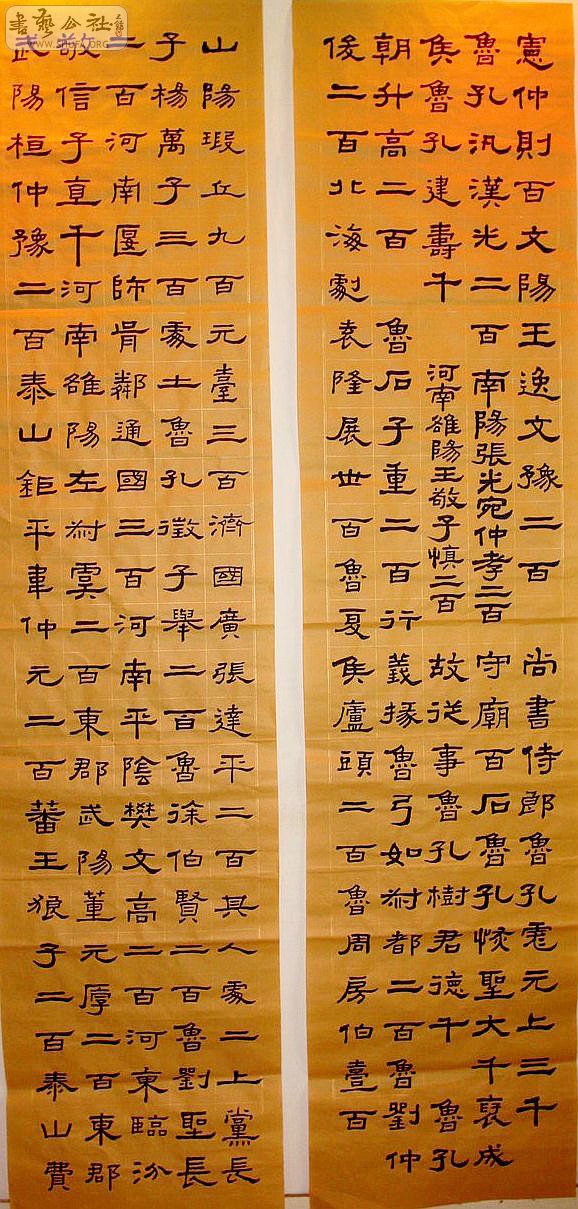 書藝公社
WWW.SHUFA.ORG
憲仲則百文陽王逸文豫二百 尚書侍郎魯孔彪元上三千
魯孔汎漢光二百南陽張光宛仲孝二百 守廟百石魯孔恢聖大千褒成
侯魯孔建壽千 河南雒陽王敬子慎二百 故從事魯孔樹君德千 魯孔
朝升高二百 魯石子重二百行義掾魯弓如叔都二百魯劉仲
俊二百北海劇袁隆展世百魯夏侯廬頭二百魯周房伯臺百
山陽瑕丘九百元臺三百濟國廣張達平二百其人處二上黨長
子楊萬子三百處土魯孔徵子舉二百魯徐伯賢二百魯劉聖長
二百河南匽師胥鄰通國三百河南平陰樊文高二百河東臨汾
敬信子直千河南雒陽左叔虞二百東郡武陽董元厚二百東郡
武陽桓仲豫二百泰山鉅平韋仲元二百蕃王狼子二百泰山費